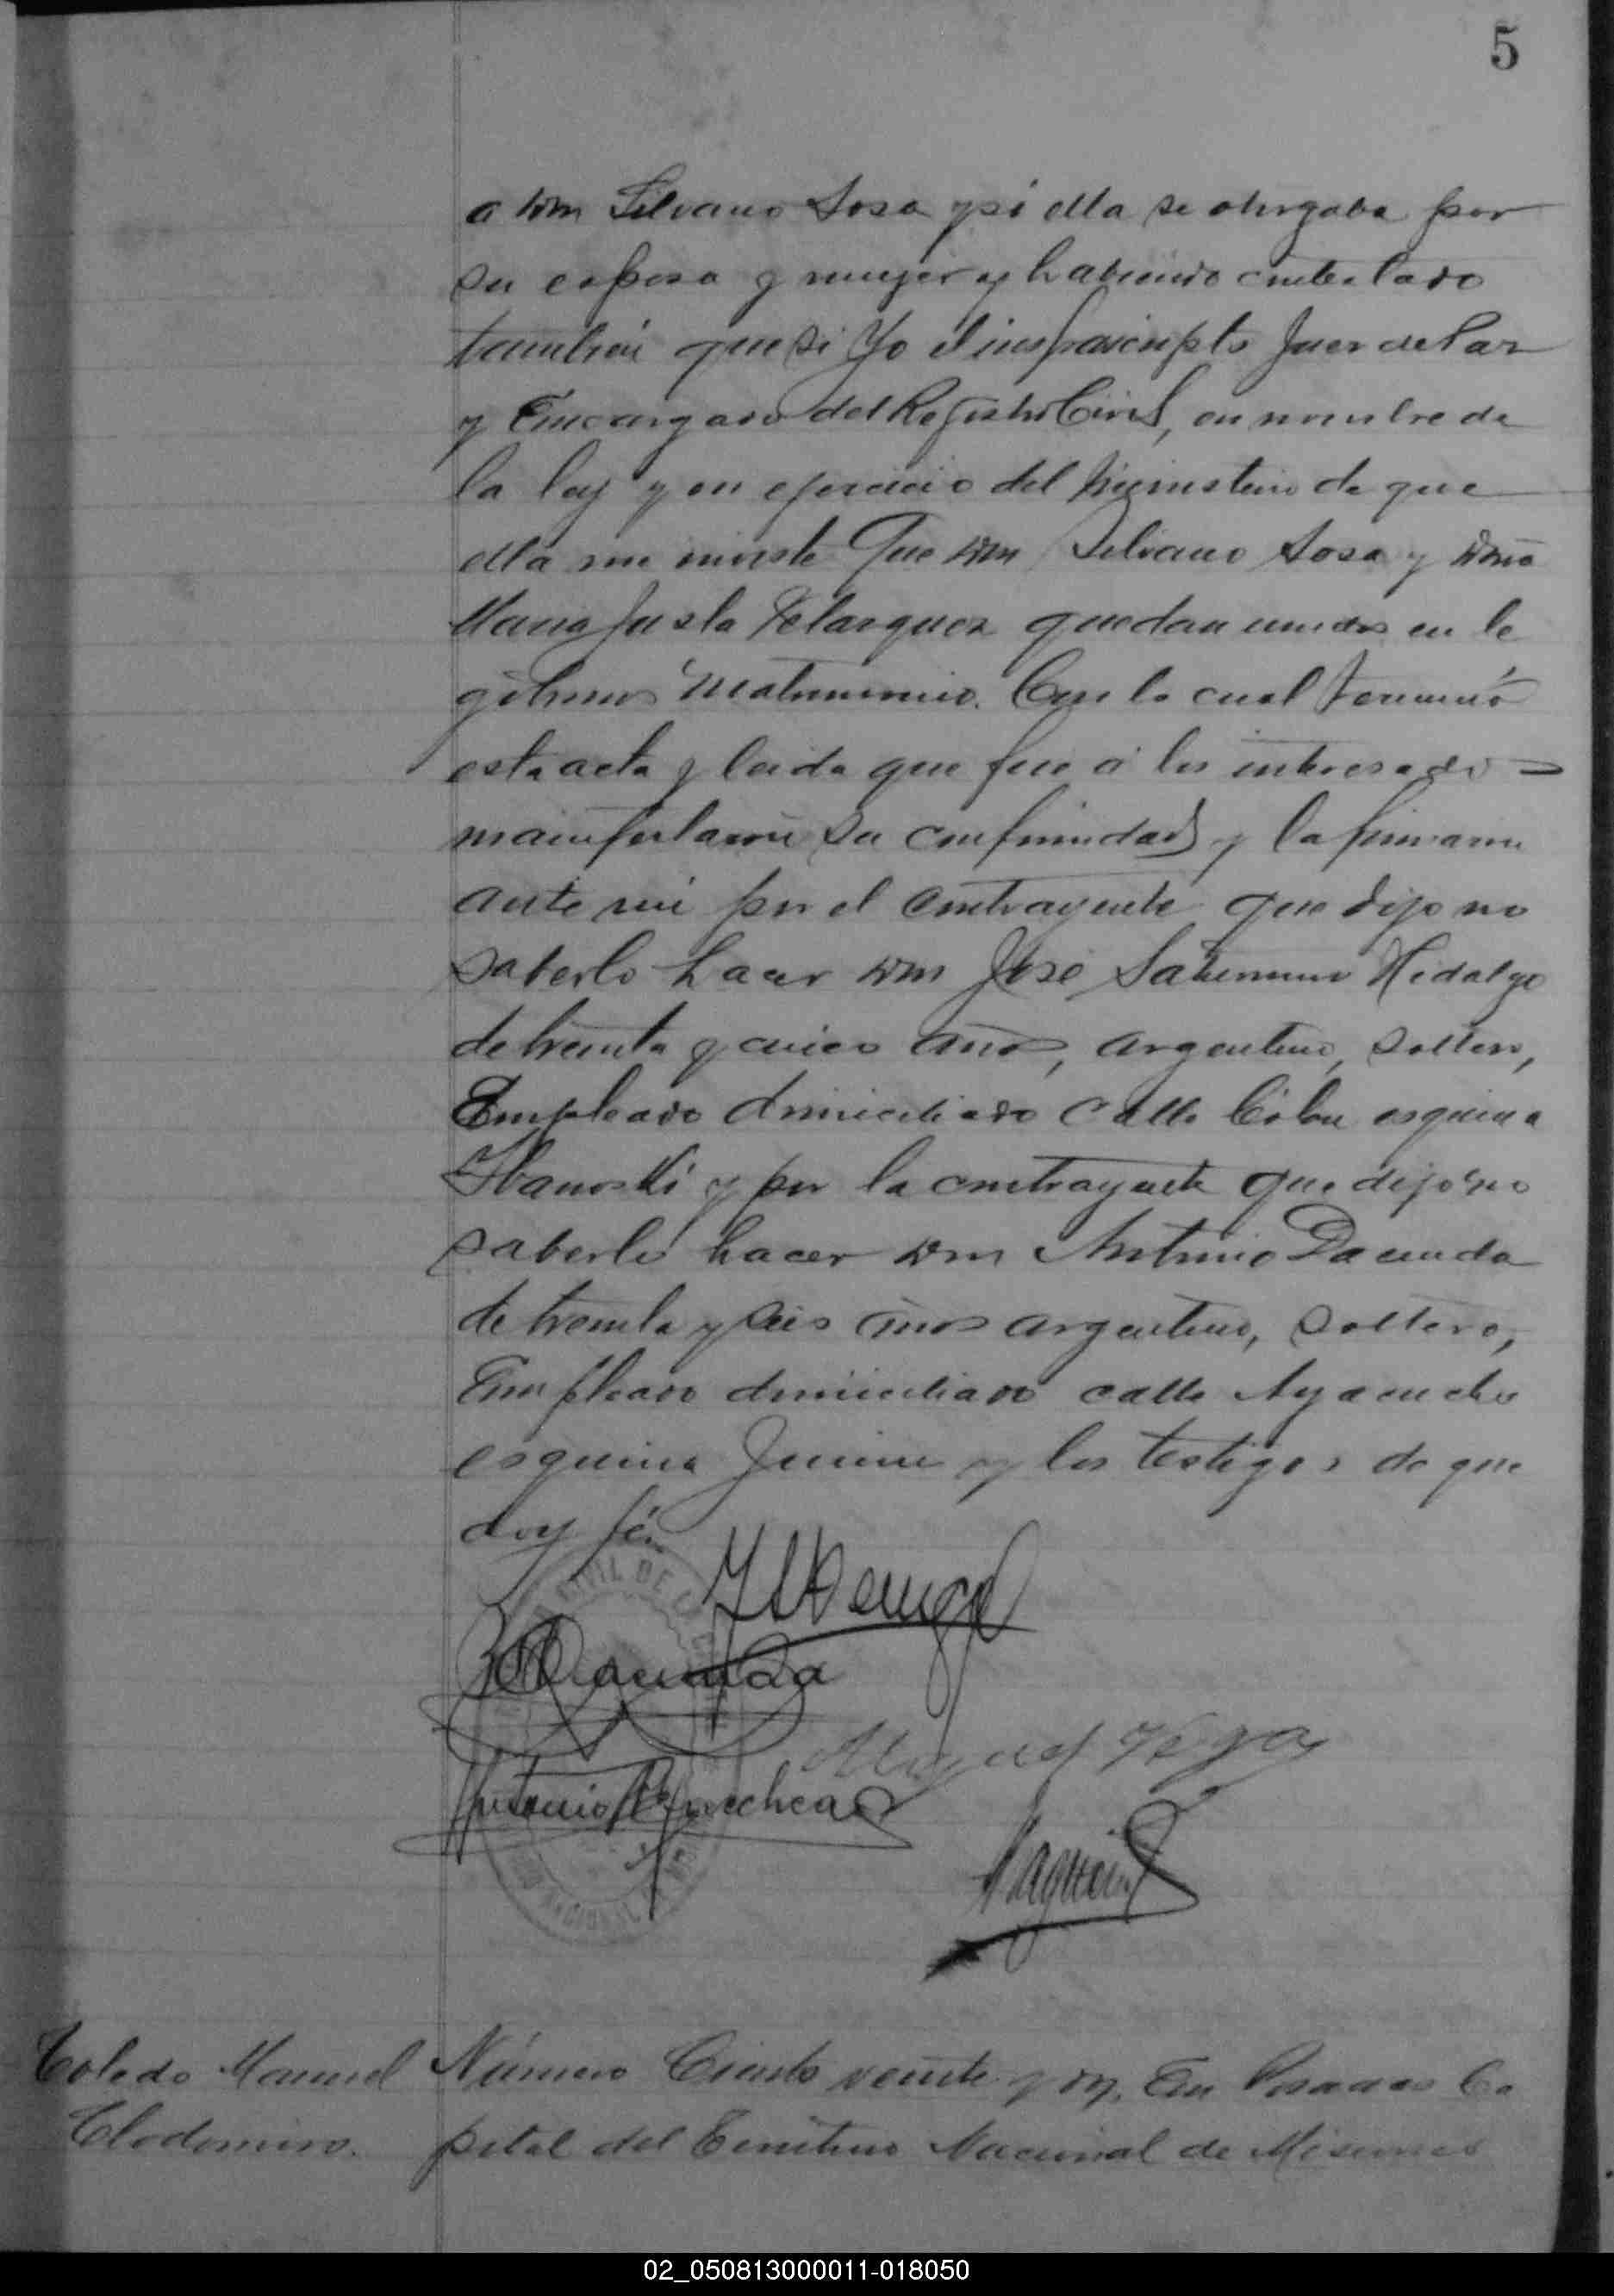 5
a don Silvano Sosa y si ella se otorgaba por
su esposa y mujer y habiendo contestado
también que si Yo el infrascripto Juez de Paz
y Encargado del Registro Civil, en nombre de
la ley y en ejercicio del ministerio de que
ella me inviste Que don Silvano Sosa y doña
Maria Justa Velazquez quedan unidos en le
gitimo matrimonio. Con lo cual terminó
esta acta y leida que fue á los interesados
manifestaron su conformidad y la firmaron
ante mi por el contrayente que dijo no
saberlo hacer don José Saturnino Hidalgo
de treinta y cinco años, argentino, soltero,
Empleado domiciliado calle Colon esquina
y por la contrayente que dijo no
saberlo hacer don Antonio Dacunda
de treinta y seis años argentino, soltero,
Empleado domiciliado calle Ayacucho
esquina Junin y los testigos de que
doy fé.
Dacunda
Miguel Vega
Antonio
Toledo Manuel
Clodomiro.
Número Ciento veinte y dos. En Posadas Ca
pital del Territorio Nacional de Misiones
02_050813000011-018050